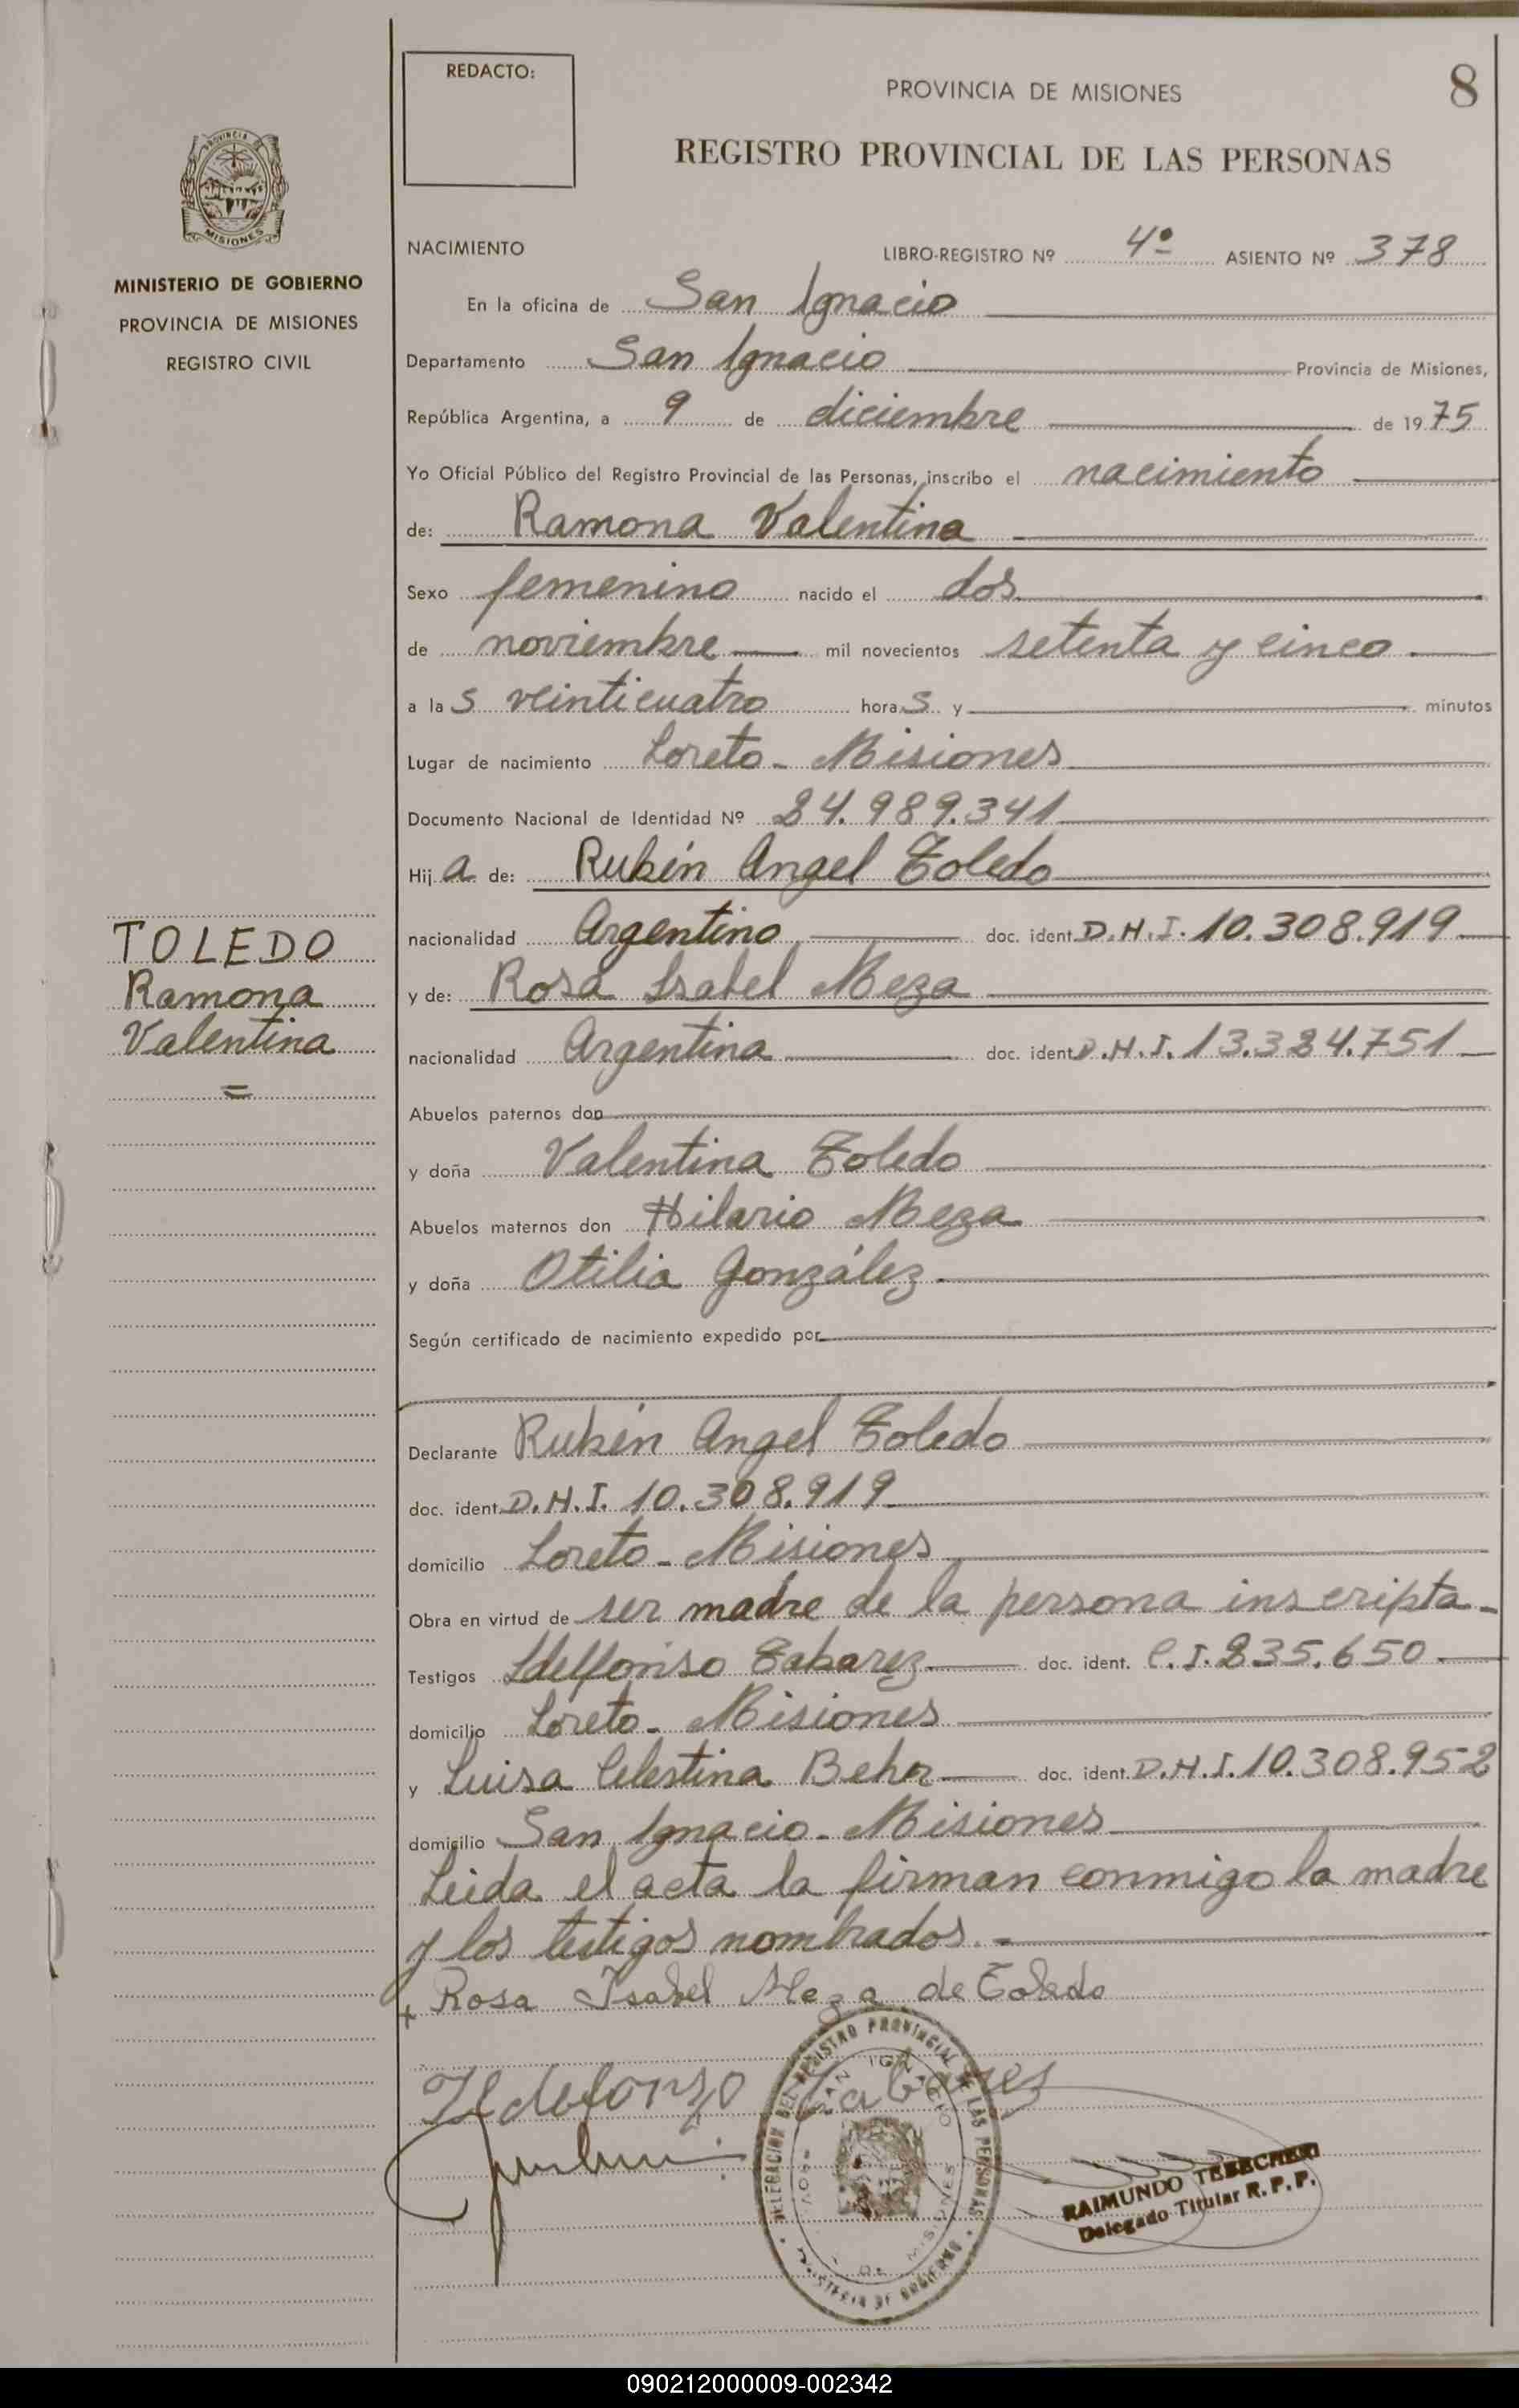 REDACTO:
PROVINCIA DE MISIONES
8
REGISTRO PROVINCIAL DE LAS PERSONAS
PROVINCIA DE
MISIONES
MINISTERIO DE GOBIERNO
PROVINCIA DE MISIONES
REGISTRO CIVIL
NACIMIENTO
LIBRO-REGISTRO Nº 4º ASIENTO Nº 378
En la oficina de San Ignacio
Departamento San Ignacio Provincia de Misiones,
República Argentina, a 9 de diciembre de 1975
Yo Oficial Público del Registro Provincial de las Personas, inscribo el nacimiento
de: Ramona Valentina
Sexo femenino nacido el dos
de noviembre mil novecientos setenta y cinco.
a las veinticuatro horas y minutos
Lugar de nacimiento Loreto - Misiones
Documento Nacional de Identidad Nº 24.989.341
Hija de: Rubén Angel Toledo
nacionalidad Argentino doc. ident. D.N.I. 10.308.919
y de: Rosa Isabel Meza
nacionalidad Argentina doc. ident. D.N.I. 13.324.751
TOLEDO
Ramona
Valentina
=
Abuelos paternos don
y doña Valentina Toledo
Abuelos maternos don Hilario Meza
y doña Otilia González.
Según certificado de nacimiento expedido por
Declarante Rubén Angel Toledo
doc. ident. D.N.I. 10.308.919
domicilio Loreto - Misiones
Obra en virtud de ser madre de la persona inscripta.
Testigos Ildefonso Tabarez doc. ident. C.I. 235.650.
domicilio Loreto - Misiones
y Luisa Celestina Beher doc. ident. D.N.I. 10.308.952
domicilio San Ignacio - Misiones
Leída el acta la firman conmigo la madre
y los testigos nombrados. =
x Rosa Isabel Meza de Toledo
Ildefonzo Tabarez
DELEGACION DEL REGISTRO PROVINCIAL DE LAS PERSONAS
SAN IGNACIO
PROV. DE MISIONES
MINISTERIO DE GOBIERNO
RAIMUNDO TEBECHERI
Delegado Titular R. P. P.
090212000009-002342